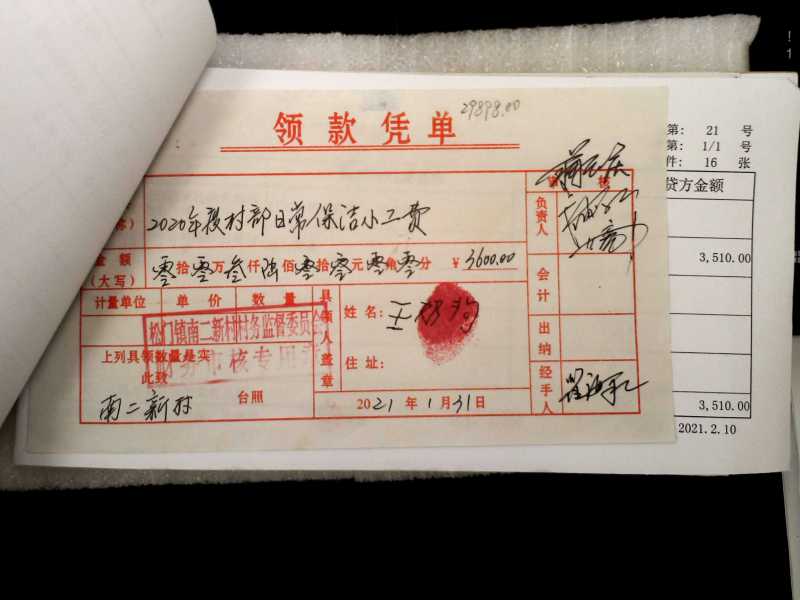 29898.00
领款凭单
第: 21 号
第: 1/1 号
件: 16 张
贷方金额
称)
2020年度村部日常保洁小工费
负责人
金额
(大写)
零拾零万叁仟陆佰零拾零元零角零分 ¥3600.00
3,510.00
会计
计量单位 单价 数量
具领人盖章
姓名: 王
松门镇南二新村村务监督委员会
财务审核专用章
出纳
上列具领数量是实
此致
住址:
经手人
南二新村 台照
2021年1月31日
3,510.00
2021.2.10